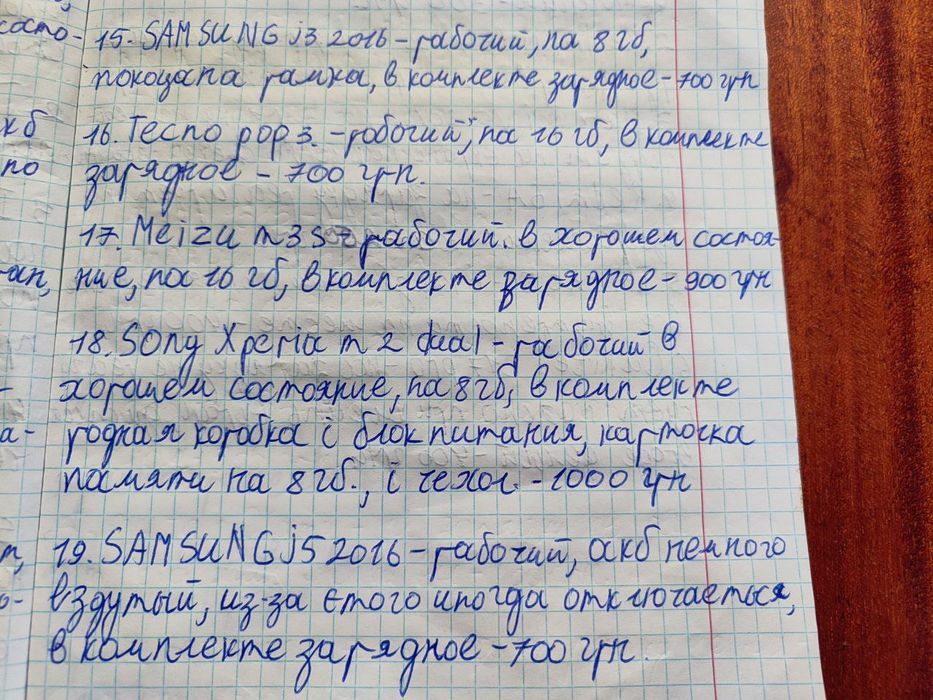 15. SAMSUNG j3 2016 - рабочий, на 8 гб,
покоцана рамка, в комплекте зарядное - 700 грн
16. Tecno pop 3. - рабочий, на 16 гб, в комплекте
зарядное - 700 грн.
17. Meizu m3s - рабочий. в хорошем состоя-
ние, на 16 гб, в комплекте зарядное - 900 грн
18. SOny Xperia m2 dual - рабочий в
хорошем состояние, на 8 гб, в комплекте
родная коробка і блок питания, карточка
памяти на 8 гб., і чехол. - 1000 грн
19. SAMSUNG j5 2016 - рабочий, акб немного
вздутый, из-за єтого иногда отключаеться,
в комплекте зарядное - 700 грн.
состо-
кб
по